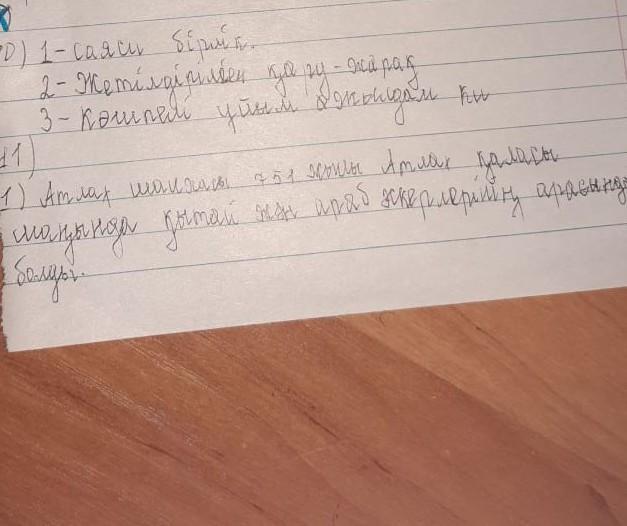 0) 1-саяси бірлік.
2-Жетілдірілген қару-жарақ
3-Көшпелі ұйым
11)
1) Атлах шайқасы 751 жылы Атлах қаласы
маңында қытай жән араб әскерлерінің арасында
болды.